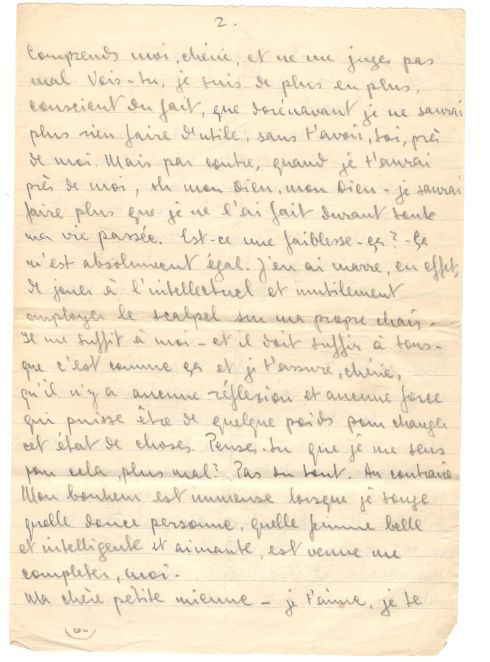 2.
Comprends moi, chérie, et ne me juges pas
mal. Vois-tu, je suis de plus en plus,
conscient du fait, que dorénavant je ne saurai
plus rien faire d'utile, sans t'avoir, toi, près
de moi. Mais par contre, quand je t'aurai
près de moi, oh mon Dieu, mon Dieu - je saurai
faire plus que je ne l'ai fait durant toute
ma vie passée. Est-ce une faiblesse-ça? - Ça
m'est absolument égal. J'en ai marre, en effet,
de jouer à l'intellectuel et inutilement
employer le scalpel sur ma propre chair.
Il me suffit à moi - et il doit suffir à tous -
que c'est comme ça et je t'assure, chérie,
qu'il n'y a aucune réflexion et aucune force
qui puisse être de quelque poids pour changer
cet état de choses. Penses-tu que je me sens
pour cela, plus mal? Pas du tout. Au contraire
Mon bonheur est immense lorsque je songe
quelle douce personne, quelle femme belle
et intelligente et aimante, est venue me
completer, moi.
Ma chère petite mienne - je t'aime, je te